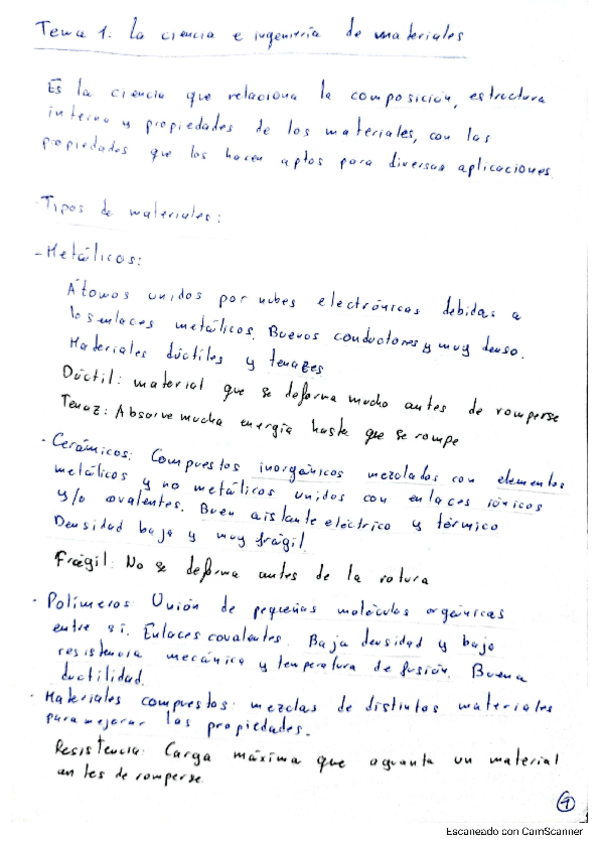 Tema 1. La ciencia e ingeniería de materiales
Es la ciencia que relaciona la composición, estructura
interna y propiedades de los materiales, con las
propiedades que los hacen aptos para diversas aplicaciones.
Tipos de materiales:
- Metálicos:
Átomos unidos por nubes electrónicas debidas a
los enlaces metálicos. Buenos conductores y muy denso.
Materiales dúctiles y tenazes
Dúctil: material que se deforma mucho antes de romperse
Tenaz: Absorve mucha energía hasta que se rompe
· Cerámicos: Compuestos inorgánicos mezclados con elementos
metálicos y no metálicos unidos con enlaces iónicos
y/o covalentes. Buen aislante eléctrico y térmico
Densidad baja y muy frágil.
Frágil: No se deforma antes de la rotura
· Polímeros: Unión de pequeñas moléculas orgánicas
entre sí. Enlaces covalentes. Baja densidad y baja
resistencia mecánica y temperatura de fusión. Buena
ductilidad.
· Materiales compuestos: mezclas de distintos materiales
para mejorar las propiedades.
Resistencia: Carga máxima que aguanta un material
antes de romperse.
1
Escaneado con CamScanner